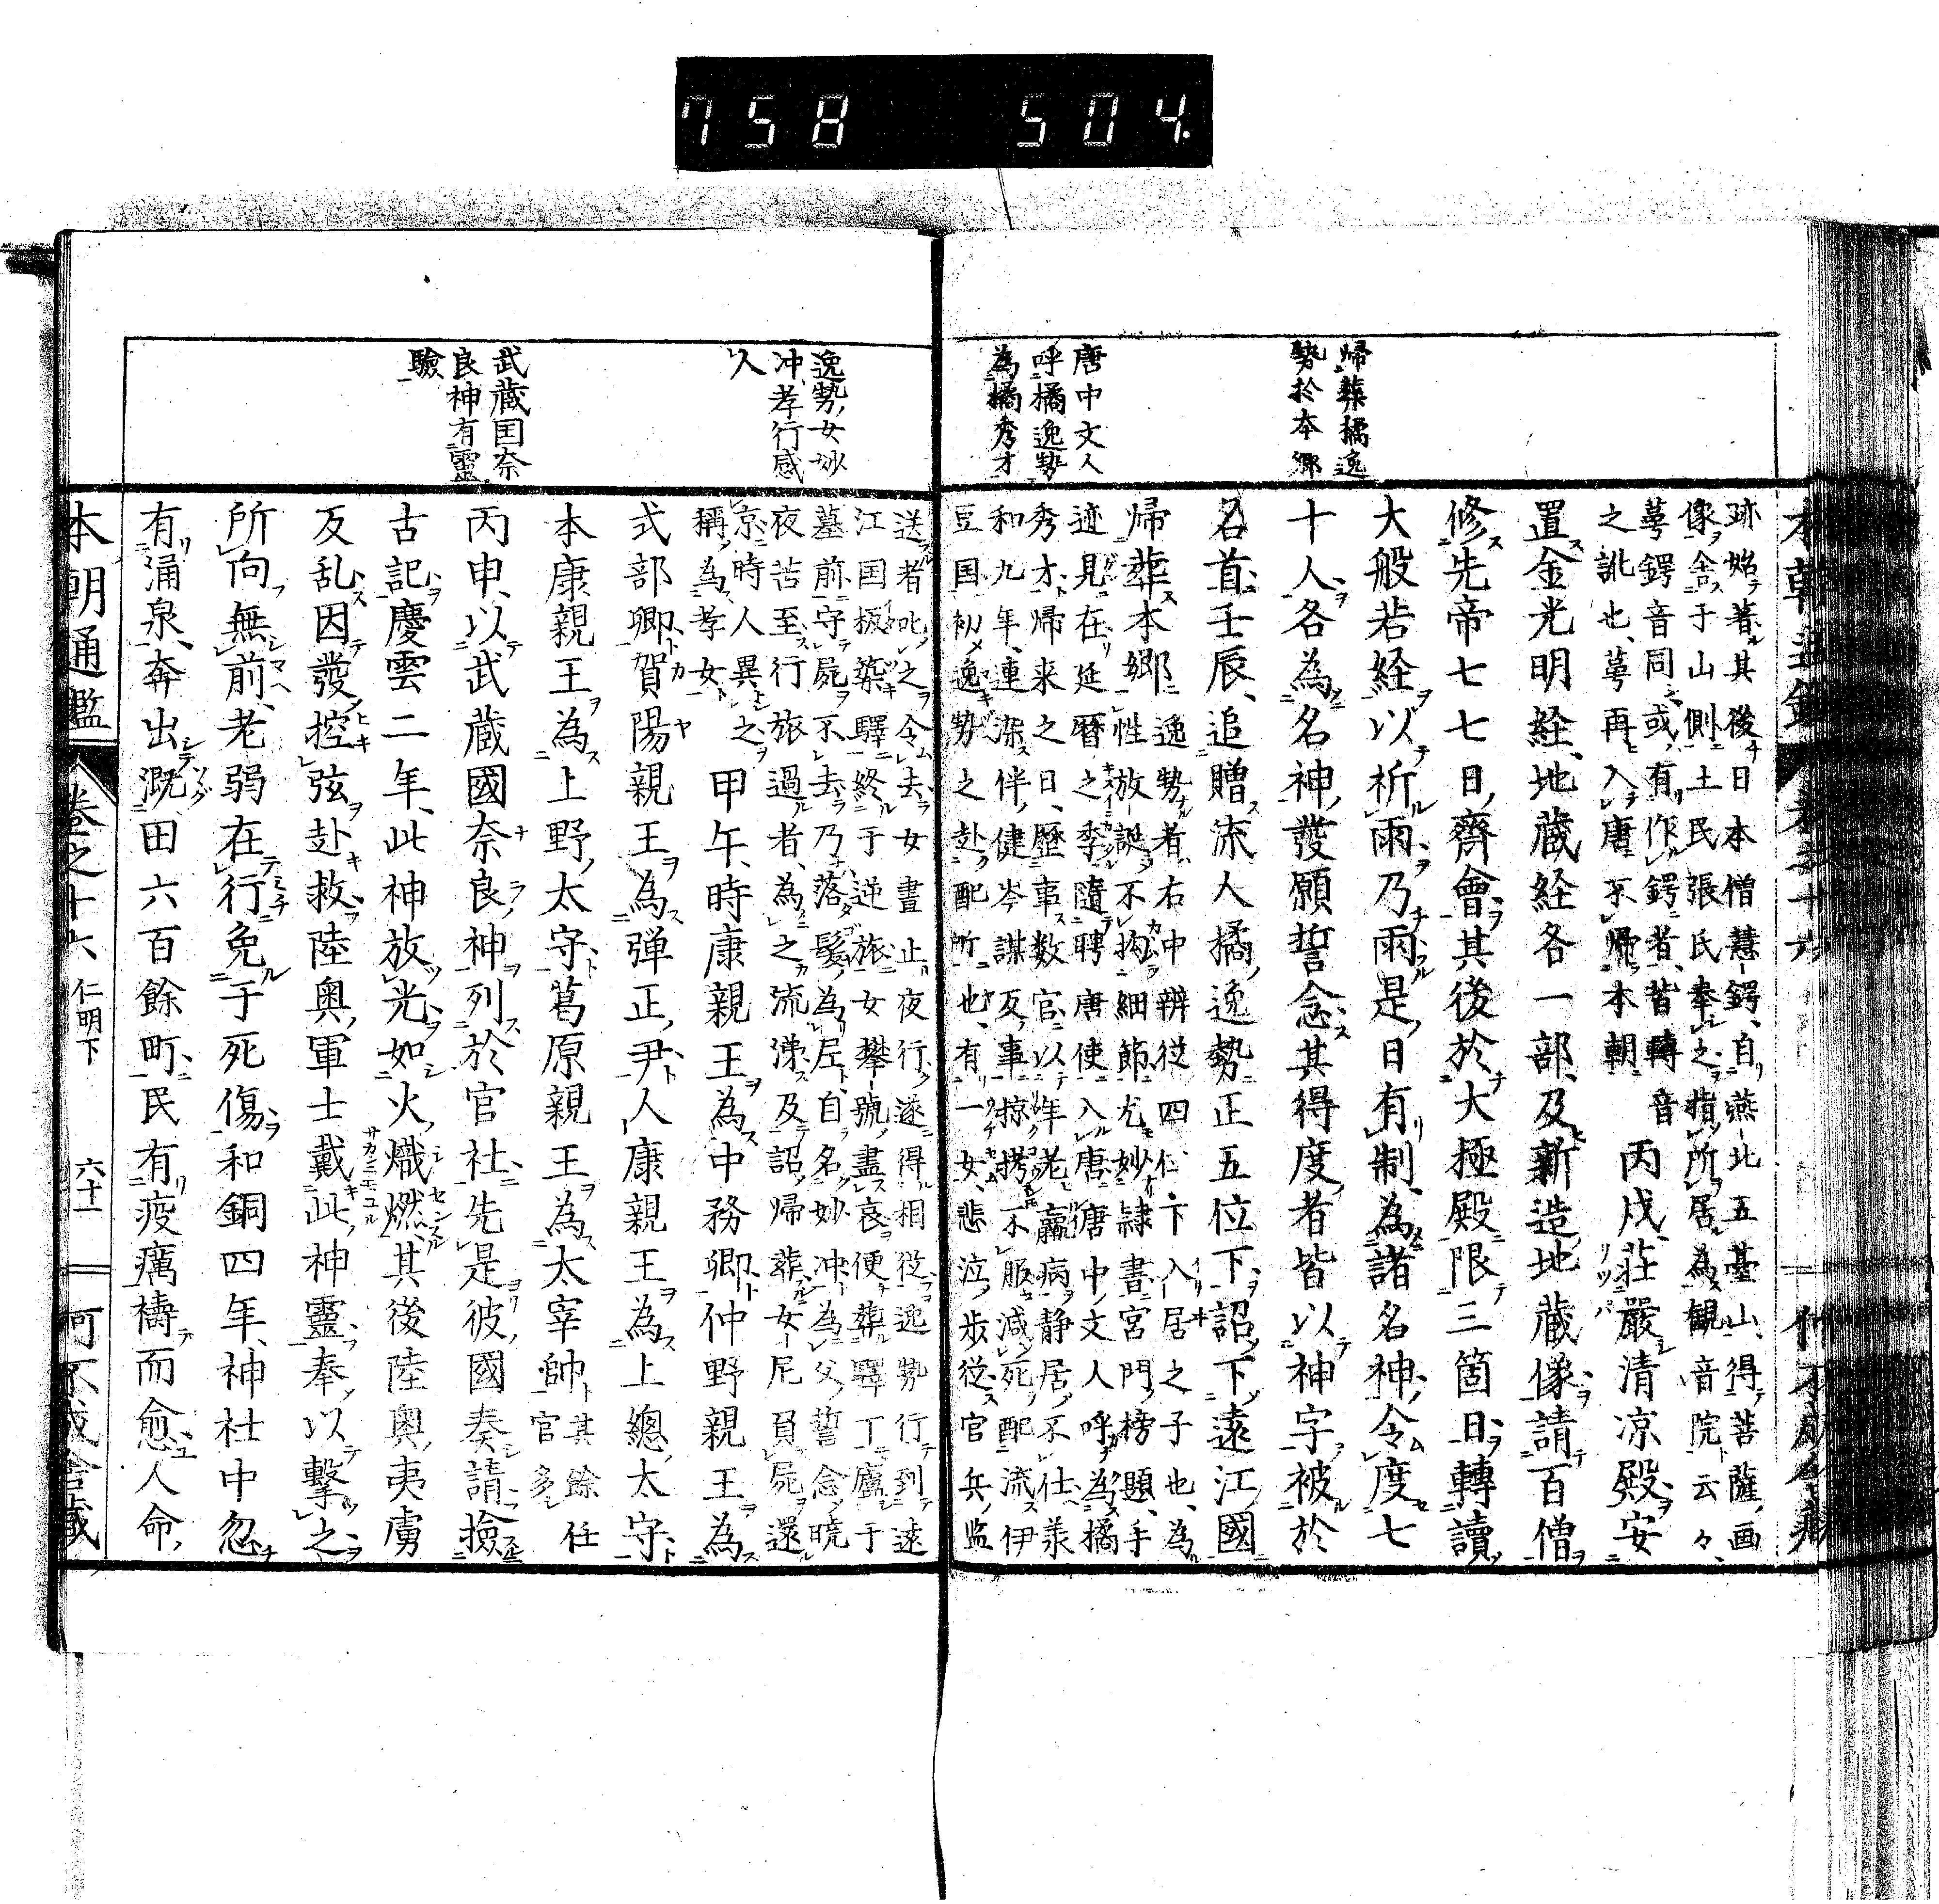 758 504.
歸葬橘逸
勢於本鄉
唐中文人
呼橘逸勢
為橘秀才
跡始著其後日本僧慧鍔自燕北五臺山得菩薩画
像舎于山側土民張氏奉之指所居為観音院云々
萼鍔音同或有作鍔者皆轉音
之訛也萼再入唐不帰本朝
丙戌荘嚴清凉殿安
置金光明経地蔵経各一部及新造地蔵像請百僧
修先帝七七日齊會其後於大極殿限三箇日轉讀
大般若経以祈雨乃雨是日有制為諸名神令度七
十人各為名神發願誓念其得度者皆以神字被於
名首壬辰追贈流人橘逸勢正五位下詔下遠江國
帰葬本郷
逸勢者右中辨従四位下入居之子也為
性放誕不拘細節尤妙隷書宮門榜題手
迹見在延暦之季隨聘唐使入唐唐中文人呼為橘
秀才帰来之日歷事数官以年老羸病静居不仕羕
和九年連染伴健岑謀反事掠拷不服減死配流伊
豆国初逸勢之赴配所也有一女悲泣歩従官兵監
逸勢女妙
冲孝行感
人
武蔵国奈
良神有靈
驗
送者叱之令去女晝止夜行遂得相従逸勢行到遠
江国板築驛終于逆旅女攀號盡哀便葬驛下廬于
墓前守屍不去乃落髮為尼自名妙冲為父誓念曉
夜苦至行旅過者為之流涕及詔帰葬女尼負屍還
京時人異之
稱為孝女
甲午時康親王為中務卿仲野親王為
式部卿賀陽親王為弾正尹人康親王為上總太守
本康親王為上野太守葛原親王為太宰帥
其餘任
官多
丙申以武蔵國奈良神列於官社先是彼國奏請撿
古記慶雲二年此神放光如火熾燃其後陸奥夷虜
反乱因發控弦赴救陸奥軍士戴此神靈奉以撃之
所向無前老弱在行免于死傷和銅四年神社中忽
有涌泉奔出漑田六百餘町民有疫癘禱而愈人命
本朝通鑑 卷之十六 仁明下 六十一